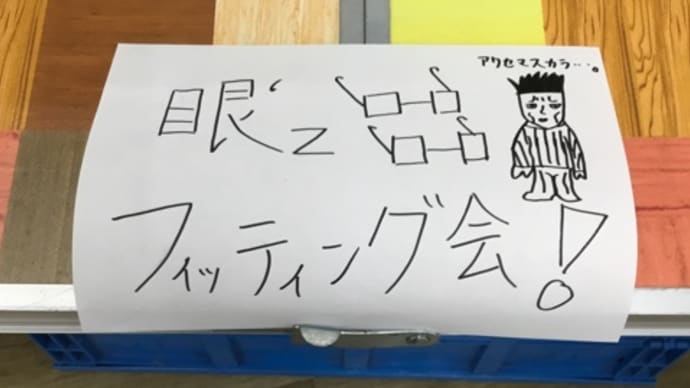 アクセマスカラ…。
眼'z
フィッティング会!